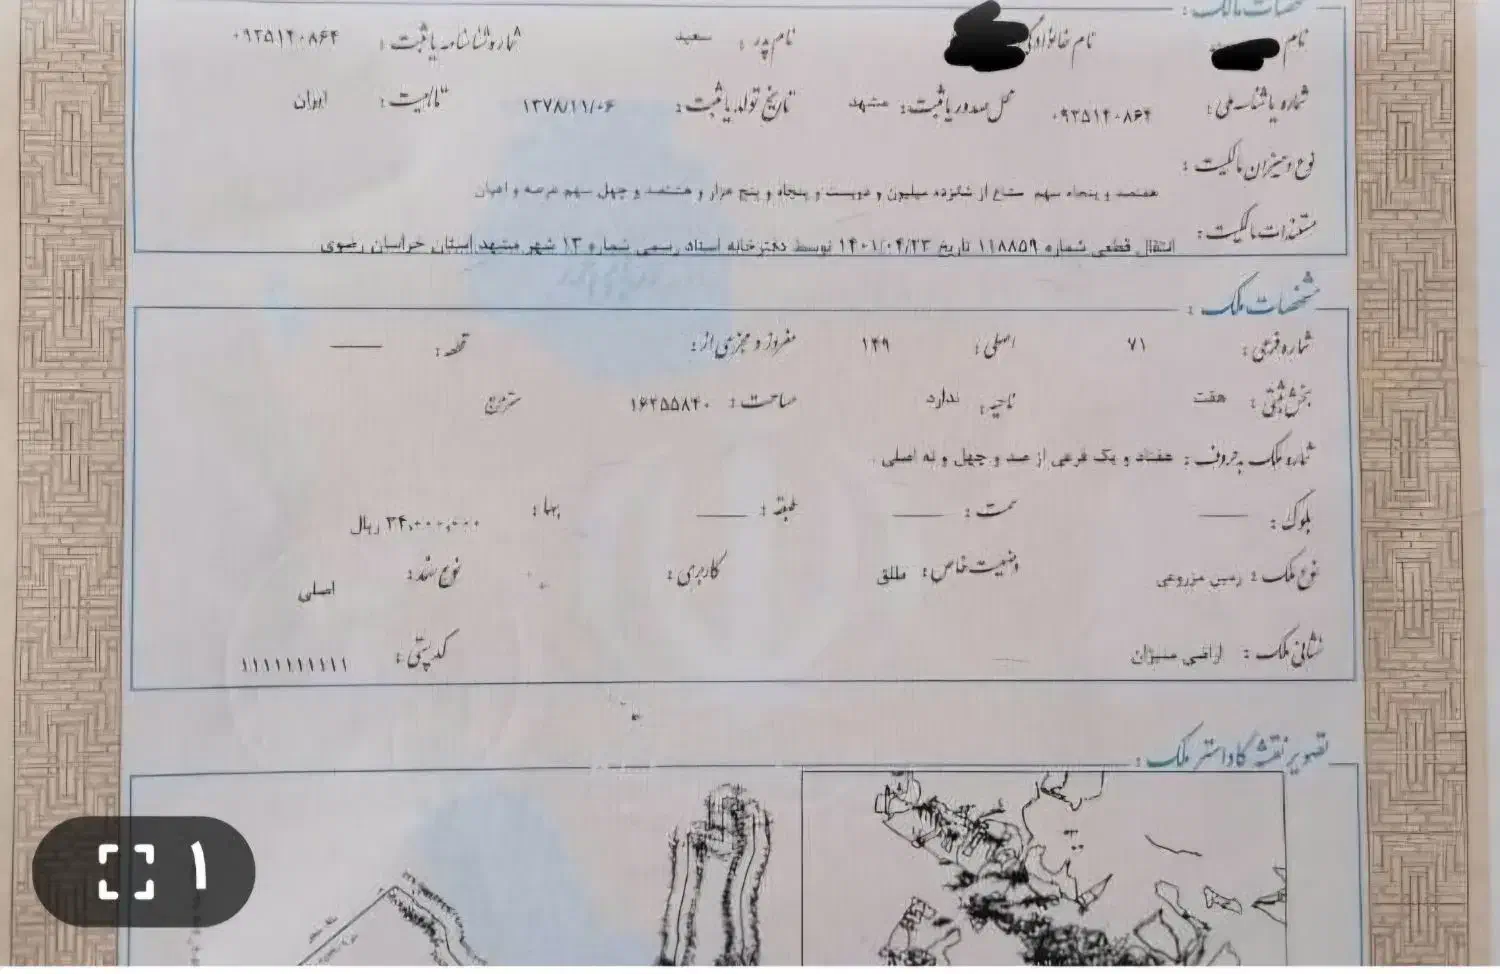 مشخصات مالک :
نام نام خانوادگی نام پدر : سعید شماره شناسنامه یا ثبت : ۰۹۲۵۱۴۰۸۶۴
شماره یا شناسه ملی : ۰۹۲۵۱۴۰۸۶۴ محل صدور یا ثبت : مشهد تاریخ تولد یا ثبت : ۱۳۷۸/۱۱/۰۶ تابعیت : ایران
نوع و میزان مالکیت :
هفتصد و پنجاه سهم مشاع از شانزده میلیون و دویست و پنجاه و پنج هزار و هشتصد و چهل سهم عرصه و اعیان
مستندات مالکیت :
انتقال قطعی شماره ۱۱۸۸۵۹ تاریخ ۱۴۰۱/۰۴/۲۳ توسط دفترخانه اسناد رسمی شماره ۱۳ شهر مشهد استان خراسان رضوی
مشخصات ملک :
شماره فرعی : ۷۱ اصلی : ۱۴۹ مفروز و مجزی از : قطعه :
بخش ثبتی : هفت ناحیه : ندارد مساحت : ۱۶۲۵۵۸۴۰ مترمربع
شماره ملک به حروف : هفتاد و یک فرعی از صد و چهل و نه اصلی .
بلوک : سمت : طبقه : بها : ۳۴,۰۰۰,۰۰۰ ریال
نوع ملک : زمین مزروعی وضعیت خاص : طلق کاربری : نوع سند : اصلی
نشانی ملک : اراضی کدپستی : ۱۱۱۱۱۱۱۱۱۱
تصویر نقشه کاداستر ملک :
۱